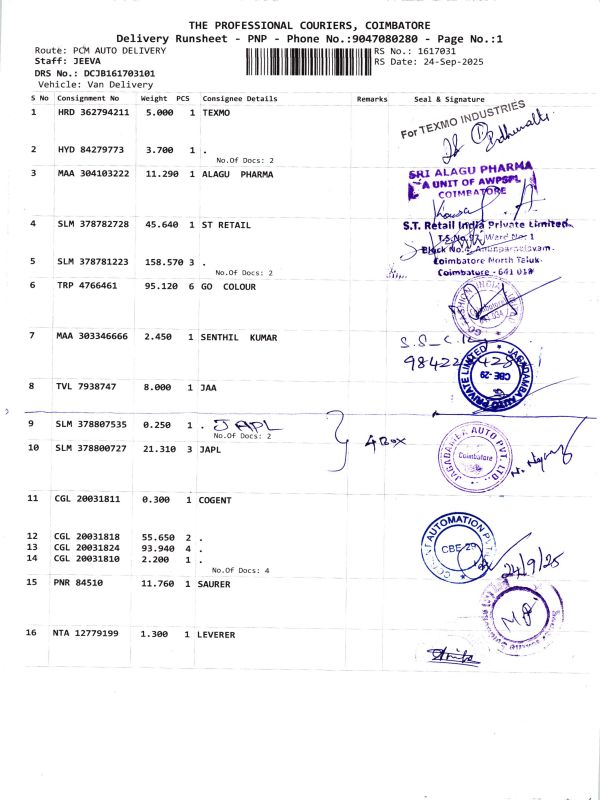 THE PROFESSIONAL COURIERS, COIMBATORE
Delivery Runsheet - PNP - Phone No.:9047080280 - Page No.:1
Route: PCM AUTO DELIVERY
RS No.: 1617031
Staff: JEEVA
RS Date: 24-Sep-2025
DRS No.: DCJB161703101
Vehicle: Van Delivery
S No Consignment No Weight PCS Consignee Details Remarks Seal & Signature
1 HRD 362794211 5.000 1 TEXMO
For TEXMO INDUSTRIES
2 HYD 84279773 3.700 1 .
No.Of Docs: 2
3 MAA 304103222 11.290 1 ALAGU PHARMA
SRI ALAGU PHARMA
A UNIT OF AWPSPL
COIMBATORE
4 SLM 378782728 45.640 1 ST RETAIL
S.T. Retail India Private Limited
Coimbatore North Taluk
Coimbatore - 641
5 SLM 378781223 158.570 3 .
No.Of Docs: 2
6 TRP 4766461 95.120 6 GO COLOUR
7 MAA 303346666 2.450 1 SENTHIL KUMAR
8 TVL 7938747 8.000 1 JAA
JAGADAMBA AUTO PRIVATE LIMITED
CBE-29
9 SLM 378807535 0.250 1 . JAPL
No.Of Docs: 2
4 Box
10 SLM 378800727 21.310 3 JAPL
JAGADAMBA AUTO PVT. LTD.
Coimbatore
11 CGL 20031811 0.300 1 COGENT
12 CGL 20031818 55.650 2 .
13 CGL 20031824 93.940 4 .
14 CGL 20031810 2.200 1 .
No.Of Docs: 4
AUTOMATION PVT
CBE-29
24/9/25
15 PNR 84510 11.760 1 SAURER
16 NTA 12779199 1.300 1 LEVERER